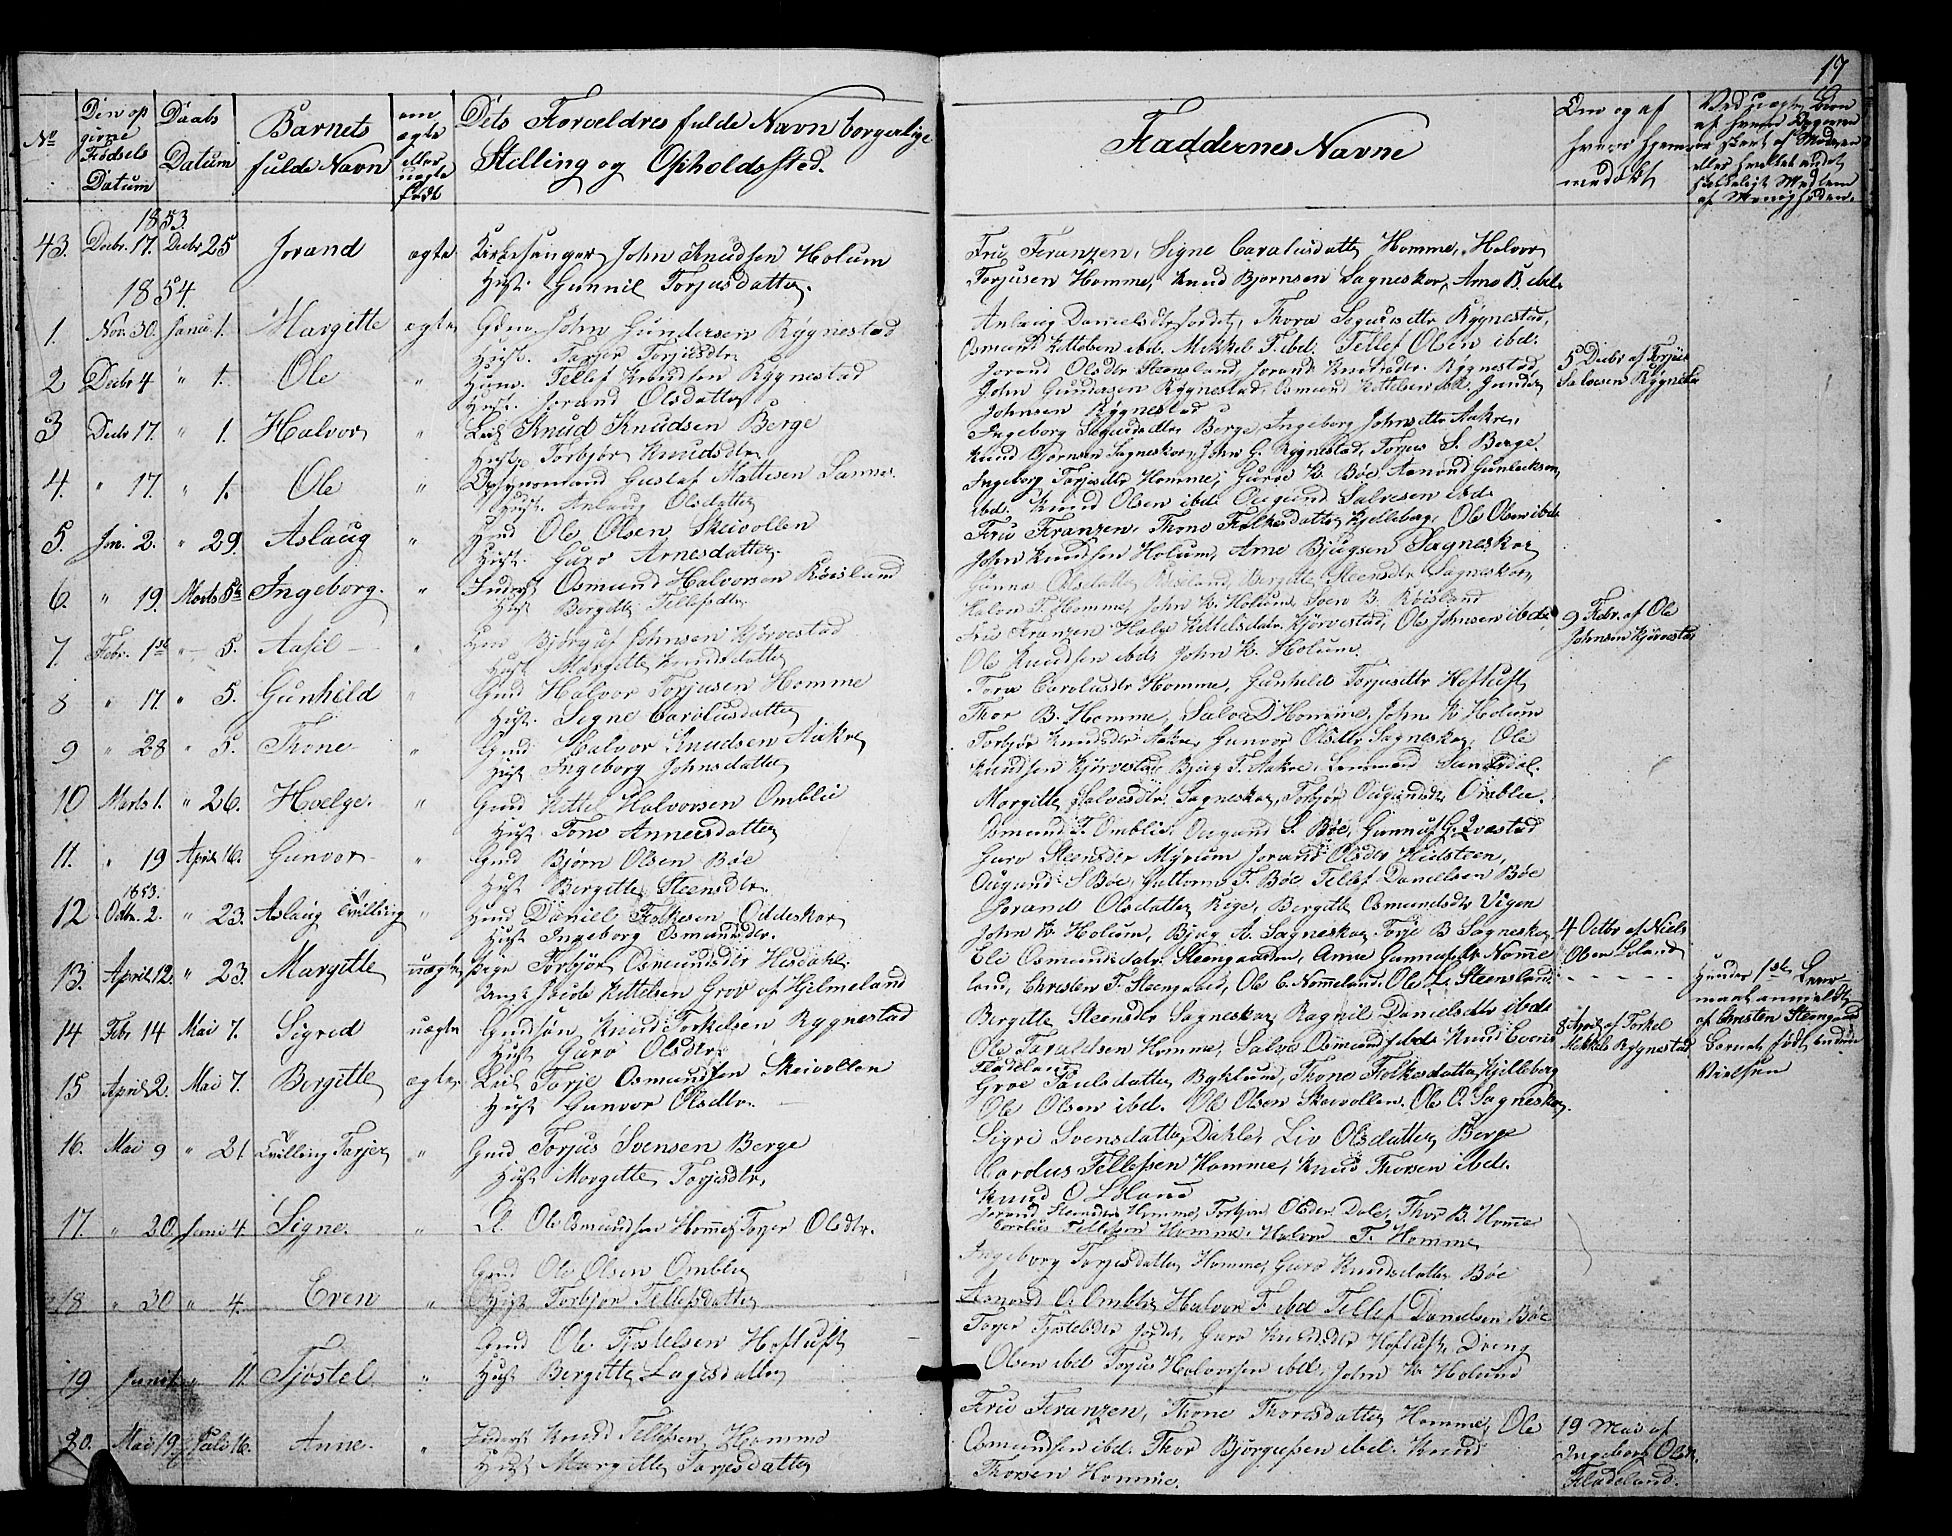 17
No
Den op
givne
Fødsels
Datum
Daabs
Datum
Barnets
fulde Navn
om
ægte
eller
uægte
født
Dets Forældres fulde Navn borgerlige
Stilling og Opholdssted.
Faddernes Navne
Om og af
hvem hjem
medøbt
1853.
43. Decbr. 17. Decbr 25 Jorand ægte Kirkesanger John Knudsen Holum
Hust. Gunnil Torjusdatter.
Fru Franzen, Signe Carolusdatter Homme, Halvor
Torjusen Homme, Knud Bjornsen Sagneskor, Arne B. ibd.
1854.
1. Nov. 30. Janu. 1. Margitte ægte Gdm. John Gundersen Rygnestad
Hust. Torjer Torjusdtr.
Anlaug Danielsdtr Jordet, Thora Sigurdsdtr Rygnestad,
Osmund Kittelsen ibd. Mikkel T. ibd. Tellef Olsen ibd.
2 Decbr 4 " 1. Ole " Huusm. Tellef Knudsen Rygnestad
Hust. Jorand Olsdatter
Jorand Olsdtr Steensland, Jorand Knudsdtr. Rygnestad,
John Gundersen Rygnestad, Osmund Kittelsen ibd. Gunder
Johnsen Rygnestad
5 Decbr af Torjus
Salvesen Rygnestad
3 Decbr 17. " 1. Halvor " Leil. Knud Knudsen Berge
Hust. Torbjør Knudsdtr
Ingeborg Sigurdsdtr Berge, Ingeborg Johnsdtr Aakre,
Knud Bjørnsen Sagneskor, John G. Rygnestad, Torjus S. Berge
4. " 17. " 1. Ole " Opsynsmand Gustaf Mattisen Sanne.
Hust. Anlaug Olsdatter
Ingeborg Torjusdtr Homme, Guroe K. Bøe, Aanund Gunleiksen
ibd. Knud Olsen ibd. Ougund Salvesen ibd.
5. Jan. 2. " 29. Aslaug " Gmd Ole Olsen Skeivollen
Hust. Guro Arnesdatter.
Fru Franzen, Thone Folkesdatter Kjelleberg, Ole Olsen ibd.
John Knudsen Holum, Arne Bjugsen Sagneskor
6. " 19. Marts 5te Ingeborg. " Inderst Osmund Halvorsen Røisland
Hust. Bergitte Tellefsdtr.
Gunne Olsdatter Røisland, Bergitte Steensdtr Sagneskor,
Halvor T. Homme, John K. Holum, Sven B. Røisland
7. Febr. 1st " 5. Aasil " Gmd Bjørguf Johnsen Kjørvestad
Hust. Margitte Knudsdatter
Fru Franzen Helge Kittelsdatr. Kjørvestad, Ole Johnsen ibd.
Ole Knudsen ibd. John K. Holum.
9 Febr. af Ole
Johnsen Kjørvestad
8 " 17. " 5. Gunhild " Gmd Halvor Torjusen Homme
Hust. Signe Carolusdatter
Torje Carolusdtr Homme, Gunhild Torjusdtr Hoftuft
Thor B. Homme, Salve D Homme, John K. Holum
9 " 28 " 5. Thone " Gmd Halvor Knudsen Aakre
Hust Ingeborg Johnsdatter
Torbjør Knudsdtr Aakre, Gunvor Olsdtr Sagneskor, Ole
Knudsen Kjørvestad Bjug T. Aakre,
10 Marts 1. " 26. Hoelge. " Gmd Kittel Halvorsen Omblie
Hust. Tone Annersdatter
Margitte Halvesdtr Sagneskor, Torbjør Ougundsdtr Omblie.
Osmund T. Omblie, Ougund S. Bøe, Gunnuf G. Qvæstad
11. " 19 April 16. Gunvor " Gmd Bjørn Olsen Bøe
Hust Bergitte Steensdtr.
Guro Steensdtr Myrum Jorand Olsdtr Hielsteen,
Ougund S Bøe, Guttorm T. Bøe Tellef Danielsen Bøe
1853.
12 Octbr. 2. " 23. Aslaug Tvilling " Gmd Daniel Folkesen Oddeskor
Hust Ingeborg Osmundsdr.
Jorand Olsdatter Rige, Bergitte Osmundsdtr Vegen
John K. Holum, Bjug A. Sagneskor, Torje B Sagneskor
4 Octbr af Niels
Olsen Løland
13. April 12. " 23. Margitte uægte Pige Torbjør Osmundsdtr Hesdahl.
Ungk. Jacob Kittelsen Grov af Hjelmeland
Eli Osmundsdatr. Steengaarden, Anne Gunnufsdtr Nomme
land, Christen F. Steengaard, Ole C. Nommeland. Ole L. Steensland
14 Febr 14 Mai 7. Sigred uægte Gmdsøn Knud Torkelsen Rygnestad
Hust Guro Olsdtr.
Bergitte Steensdtr Sagneskor Ragnil Danielsdtr ibd.
Ole Taraldsen Homme, Salve Osmundsen ibd. Knud Evens
Fladeland
8 April af Torkel
Mikkels Rygnestad
15 April 2. Mai 7. Bergitte ægte Leil. Torje Osmundsen Skeivollen
Hust Gunvor Olsdtr.
Groe Paulsdatter Byklum, Thone Folkesdatter Kjelleberg
Ole Olsen ibd. Ole Olsen Skeivollen. Ole O. Sagneskor.
16. Mai 9 " 21 Tvilling Torjer " Gmd Torjus Svensen Berge
Hust Margitte Torjusdtr.
Sigri Svensdatter Dahle, Liv Olsdatter Berge
Carolus Tellefsen Homme, Knud Thorsen ibd.
Knud O Løland
17. " 20. Juni 4. Signe. " L. Ole Osmundsen Homme, Torjer Olsdtr.
Jorand Steensdtr Homme, Torbjør Olsdtr Dale, Thor B. Homme
Carolus Tellefsen Homme. Halvor T. Homme
18 " 30 " 4. Even " Gmd Ole Olsen Omblie
Hust Torbjør Tellefsdatter
Ingeborg Torjusdatter Homme, Guro Knudsdatter Bøe
Aanond O. Omblie Halvor T. ibd Tellef Danielsen Bøe
19 Juni 1. " 11. Tjøstel " Gmd Ole Tjøstelsen Hoftuft
Hust Bergitte Lagesdatter
Torjer Tjøstelsdtr Jordet, Guro Knudsdtr Hoftuft, Dreng
Olsen ibd Torjus Halvorsen ibd., John K. Holum
20. Mai 19 Juli 16. Anne. " Inderst Knud Tellefsen Homme
Hust Margitte Torjusdatter
Fru Franzen, Thone Thorsdatter Homme, Ole
Osmundsen ibd. Thor Bjørgufsen ibd. Knud
Thorsen Homme.
19 Mai af
Ingeborg Olsd.
Fladeland.